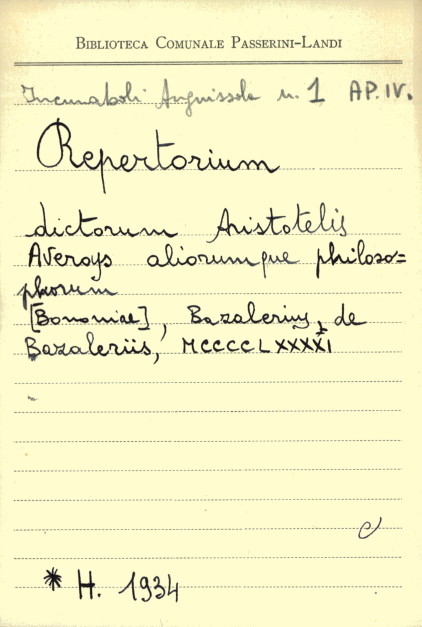 BIBLIOTECA COMUNALE PASSERINI-LANDI
Incunaboli Anguissola n. 1 AP. IV.
Repertorium
dictorum Aristotelis
Averoys aliorumque philoso=
phorum
[Bononiae], Bazalerius de
Bazaleriis, MCCCCLXXXXI
* H. 1934